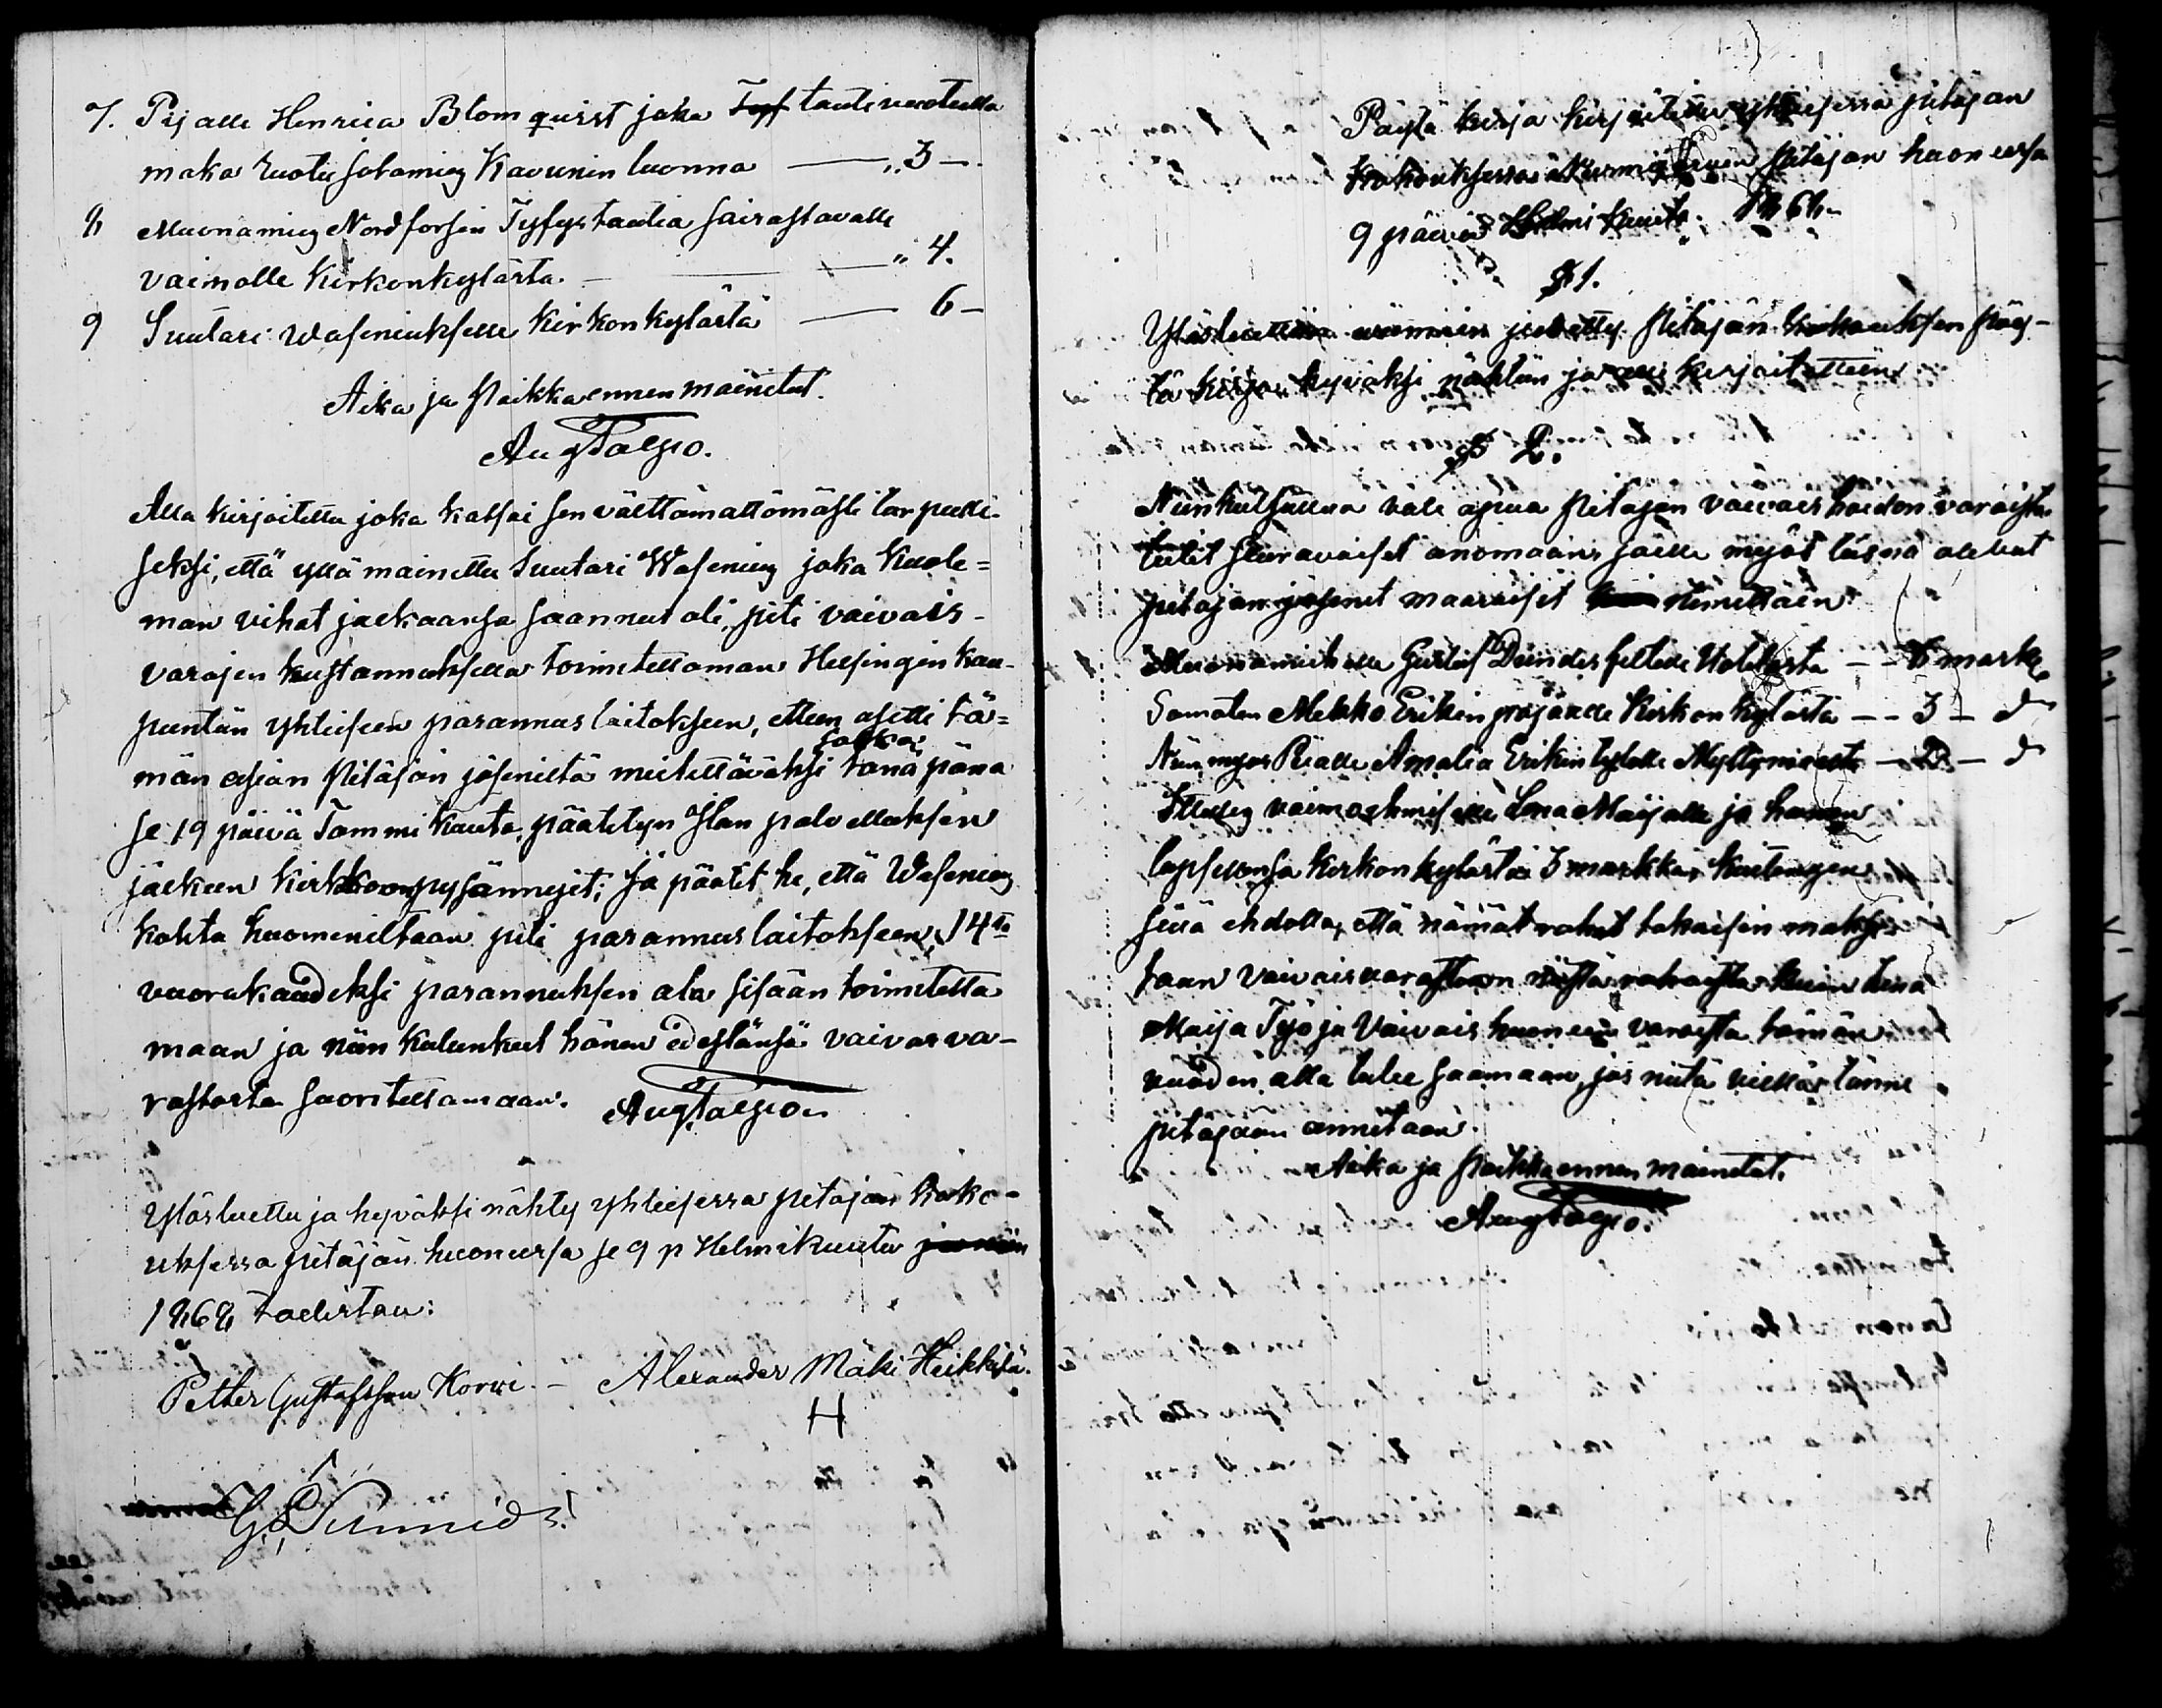 7. Pijalle Henrica Blomquist joka Tyf tautivuoteella
maka ruotusotamies Kaunin luonna — „ 3 —
8 Muonamies Nordforsin Tyfystautia sairastavalle
vaimolle Kirkonkylästa — „ 4.
9 Suutari Waseniukselle Kirkonkylästä — 6 —
Aika ja Paikka ennen mainitut.
Aug Palgio.
Alla kirjoitettu joka katsoi sen välttämättömästi tarpeelli-
seksi, että yllä mainittu Suutari Wasenius joka Kuole=
man vihat jalkaansa saannut oli, piti vaivais-
varojen kustannuksella toimitettaman Helsingin kau-
puntiin yhteiseen parannus laitokseen, etteen asetti tä=
män asian Pitäjän jäseniltä mietittäväksi tänä päna
jolka
se 19 päivä Tammi kuuta, päätetyn Ilan palvelluksen
jälkeen kirkkoon pysännyit; Ja päätit he, että Wasenius
kohta huomeniltaan piti parannuslaitokseen, 14ta
vuorukaudeksi parannuksen ala sisään toimitetta
maan ja niin kulunkiit hänen edestänsä vaivasva-
rastosta suoritettamaan. Aug Palgion
Ylösluettu ja hyväksi nähty yhteisessa pitäjän koko-
uksessa pitäjän huoneessa se 9 p Helmikuuta ja niin
1868, todistan:
Petter Gustafsson Korwi. — Alexander Mäki Heikkilä.
H
Päytä kirja kirjoitettu yhteisessä pitäjän
kokouksessa Nurmijärven pitäjän huoneessa
9 päivä Helmi kuuta 1868.
§ 1.
Ylösluettiin viimein pidetty Pitäjän kokouksen päy-
tä kirja, hyväksi nähtiin ja alle kirjoitettiin
§ 2.
Niinkuin apua Pitäjän vaivais hoidon varoista
tulit seuravaiset anomaan, joille myös läsnä olevat
pitäjän jäsenet määräisit nimittäin
Muonamiehelle Gustaf Numlasta — 8 mark
Samaten Mekko Erikin pojalle Kirkonkylästa — 3 — d
Niin myös Pialle Amalia Erikin tytölle — 2 — d
Itsellis vaimo ihmiselle Lena Maijalle ja hänen
lapsellensa Kirkonkylästä 3 markka, kuitengin
sillä ehdolla, että nämät rahat takaisin makse-
taan vaivaisvarastoon niistä rahoista kuin Lena
Maija Työ ja Vaivais huoneen varoista tämän
vuoden alla tulee saamaan, jos niitä vielä tänne
pitäjään annetaan.
Aika ja Paikka ennen mainitut.
Aug Palgio.